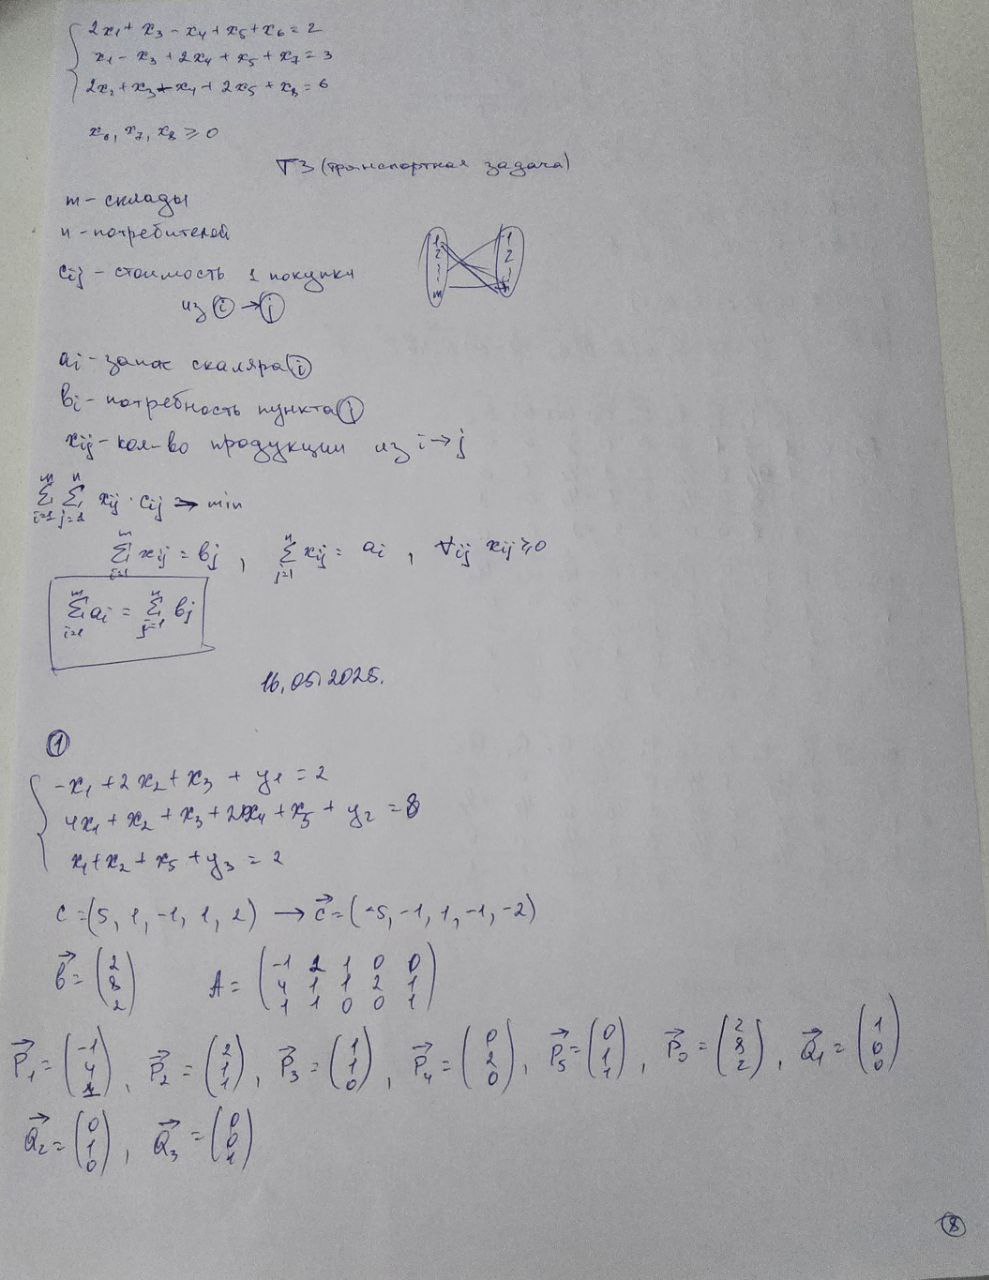 2x₁ + x₃ - x₄ + x₅ + x₆ = 2
x₁ - x₃ + 2x₄ + x₅ + x₇ = 3
2x₂ + x₃ + x₄ + 2x₅ + x₈ = 6
x₆, x₇, x₈ ≥ 0
ТЗ (транспортная задача)
m - склады
n - потребителей
cᵢⱼ - стоимость 1 покупки
из ⓘ → ⓙ
1 2 i m
1 2 j n
aᵢ - запас скаляра ⓘ
bᵢ - потребность пункта ⓙ
xᵢⱼ - кол-во продукции из i → j
∑ᵢ₌₁ᵐ ∑ⱼ₌₁ⁿ xᵢⱼ · cᵢⱼ → min
∑ᵢ₌₁ᵐ xᵢⱼ = bⱼ, ∑ⱼ₌₁ⁿ xᵢⱼ = aᵢ, ∀ᵢⱼ xᵢⱼ ≥ 0
∑ᵢ₌₁ᵐ aᵢ = ∑ⱼ₌₁ⁿ bⱼ
16.05.2025.
①
-x₁ + 2x₂ + x₃ + y₁ = 2
4x₁ + x₂ + x₃ + 2x₄ + x₅ + y₂ = 8
x₁ + x₂ + x₅ + y₃ = 2
c = (5, 1, -1, 1, 2) → c⃗ = (-5, -1, 1, -1, -2)
b⃗ = (2 8 2) A = (-1 2 1 0 0; 4 1 1 2 1; 1 1 0 0 1)
P⃗₁ = (-1 4 1), P⃗₂ = (2 1 1), P⃗₃ = (1 1 0), P⃗₄ = (0 2 0), P⃗₅ = (0 1 1), P⃗₀ = (2 8 2), Q⃗₁ = (1 0 0)
Q⃗₂ = (0 1 0), Q⃗₃ = (0 0 1)
⑧